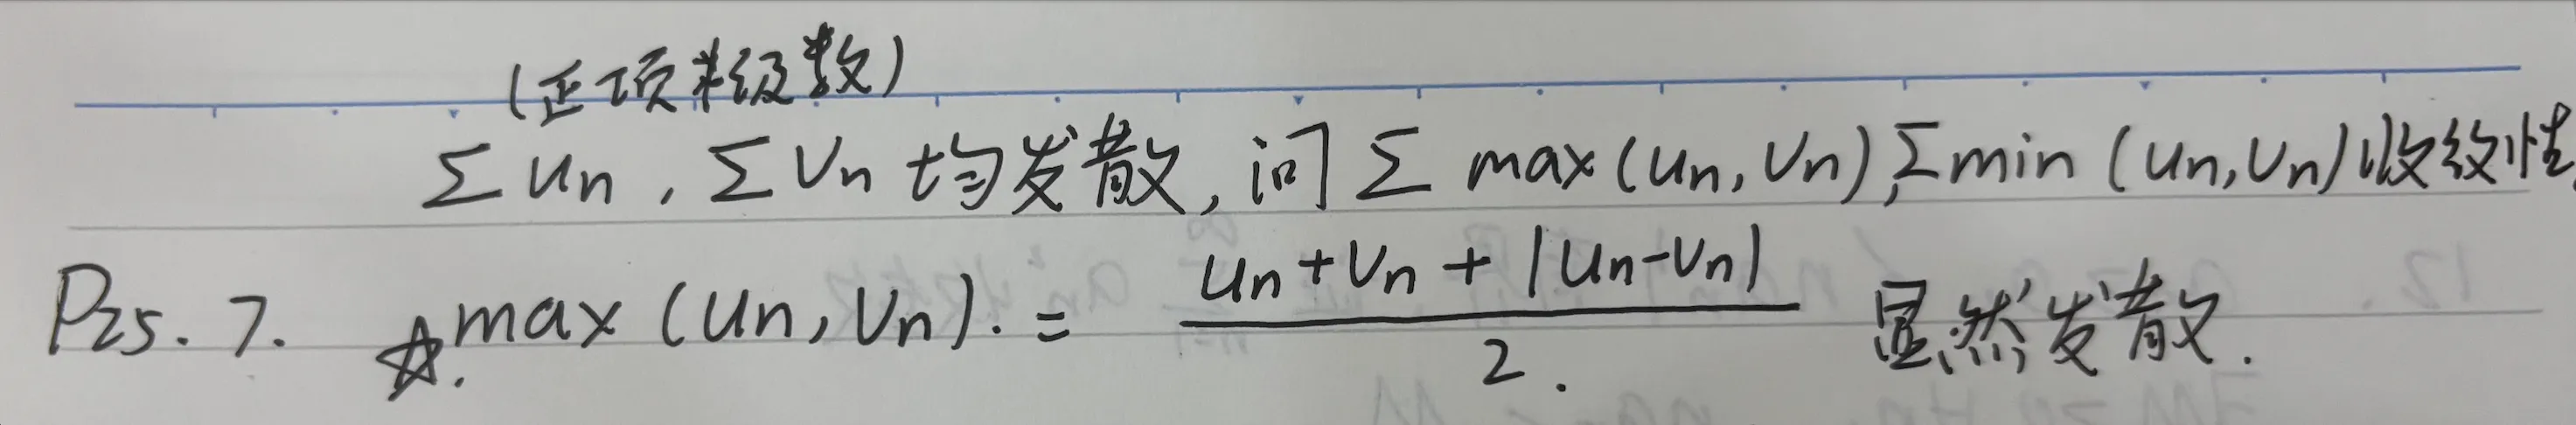 (正项级数)
∑ un , ∑ Vn 均发散, 问 ∑ max(un, Vn), ∑min (un, Vn)收敛性
P25. 7. ☆. max (un, Vn). = (un+Vn + |un-Vn|)/2. 显然发散.